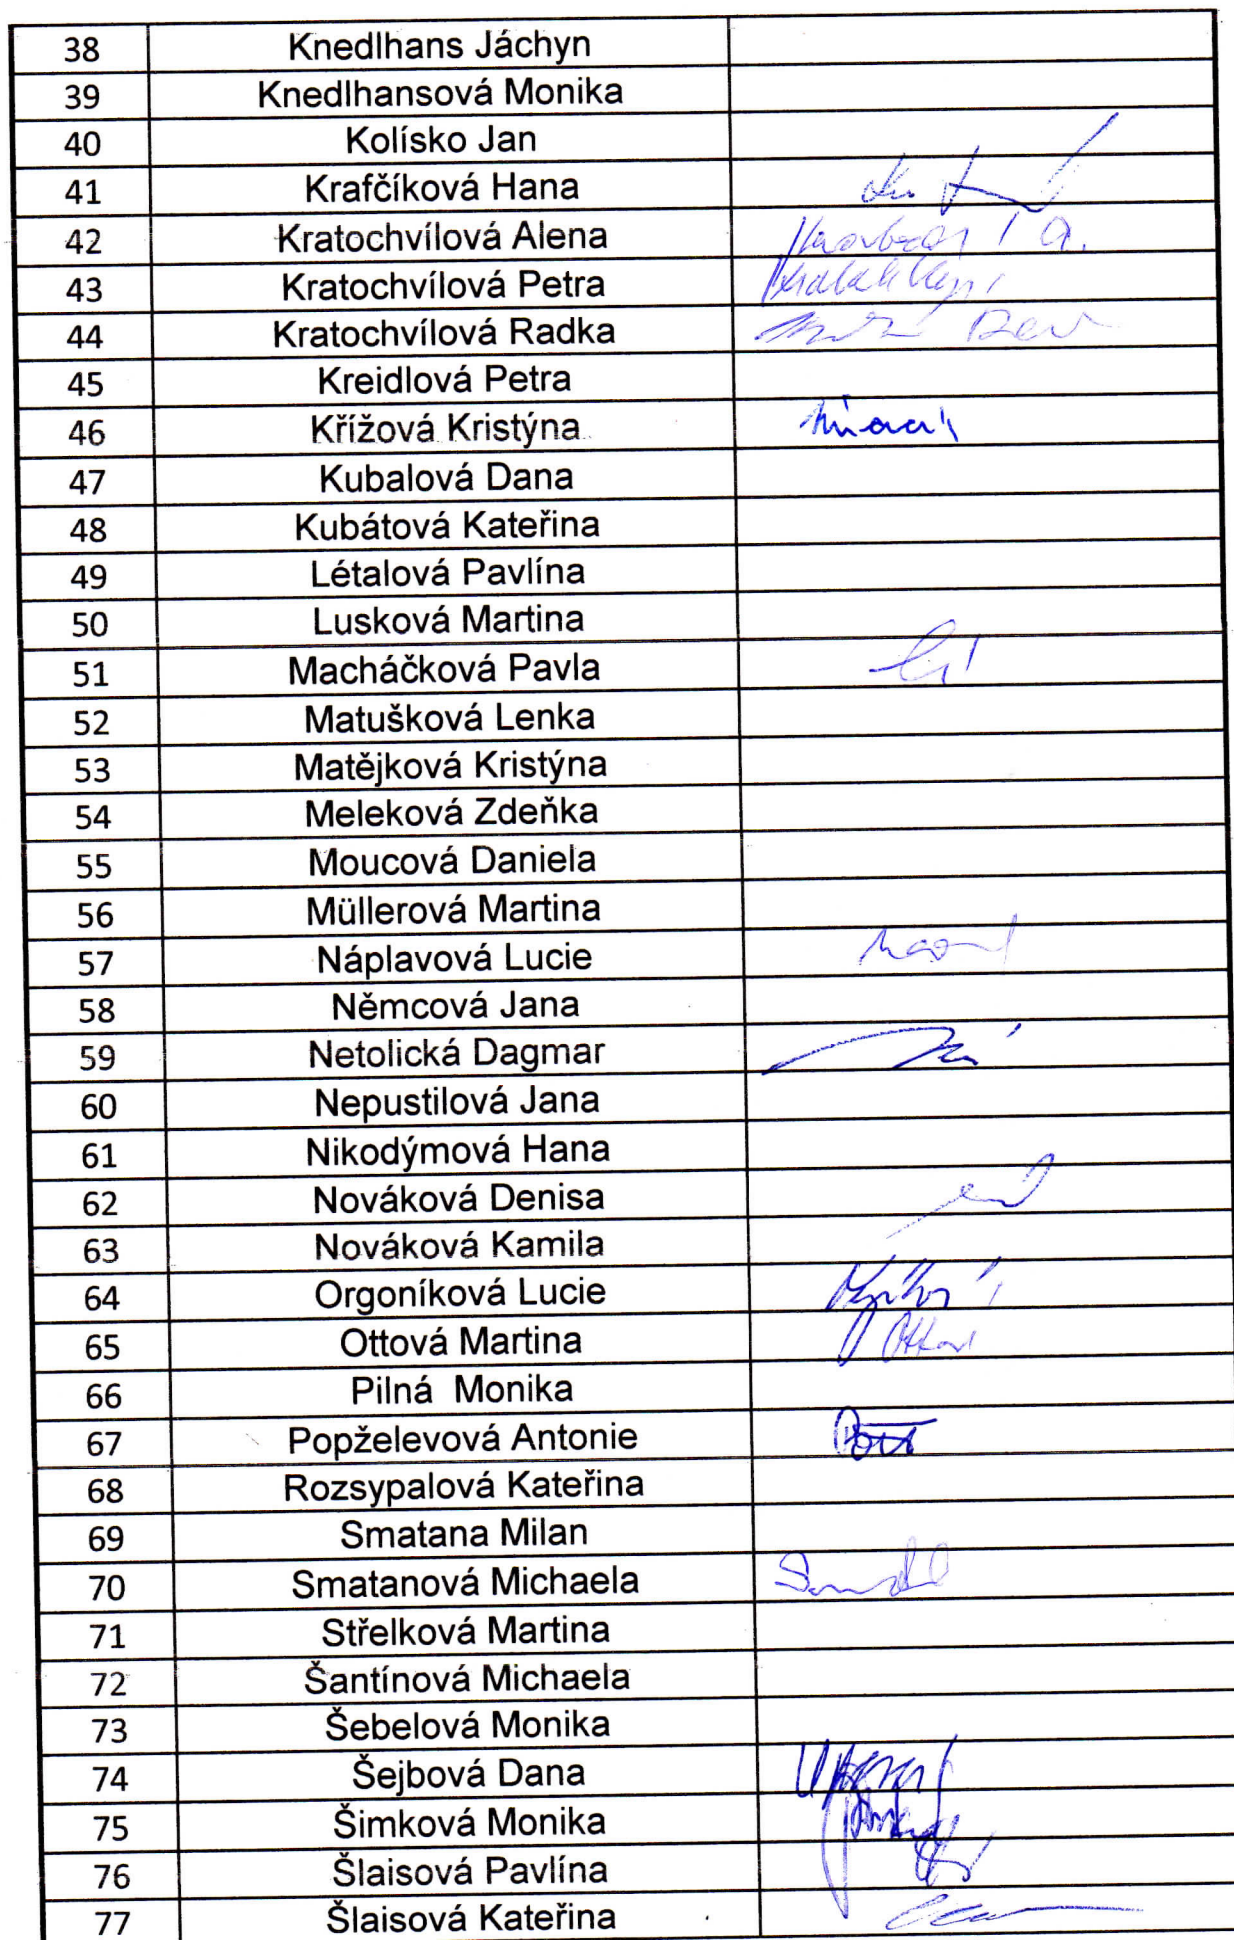 38 Knedlhans Jáchyn
39 Knedlhansová Monika
40 Kolísko Jan
41 Krafčíková Hana
42 Kratochvílová Alena
43 Kratochvílová Petra
44 Kratochvílová Radka
45 Kreidlová Petra
46 Křížová Kristýna
47 Kubalová Dana
48 Kubátová Kateřina
49 Létalová Pavlína
50 Lusková Martina
51 Macháčková Pavla
52 Matušková Lenka
53 Matějková Kristýna
54 Meleková Zdeňka
55 Moucová Daniela
56 Müllerová Martina
57 Náplavová Lucie
58 Němcová Jana
59 Netolická Dagmar
60 Nepustilová Jana
61 Nikodýmová Hana
62 Nováková Denisa
63 Nováková Kamila
64 Orgoníková Lucie
65 Ottová Martina
66 Pilná Monika
67 Popželevová Antonie
68 Rozsypalová Kateřina
69 Smatana Milan
70 Smatanová Michaela
71 Střelková Martina
72 Šantínová Michaela
73 Šebelová Monika
74 Šejbová Dana
75 Šimková Monika
76 Šlaisová Pavlína
77 Šlaisová Kateřina